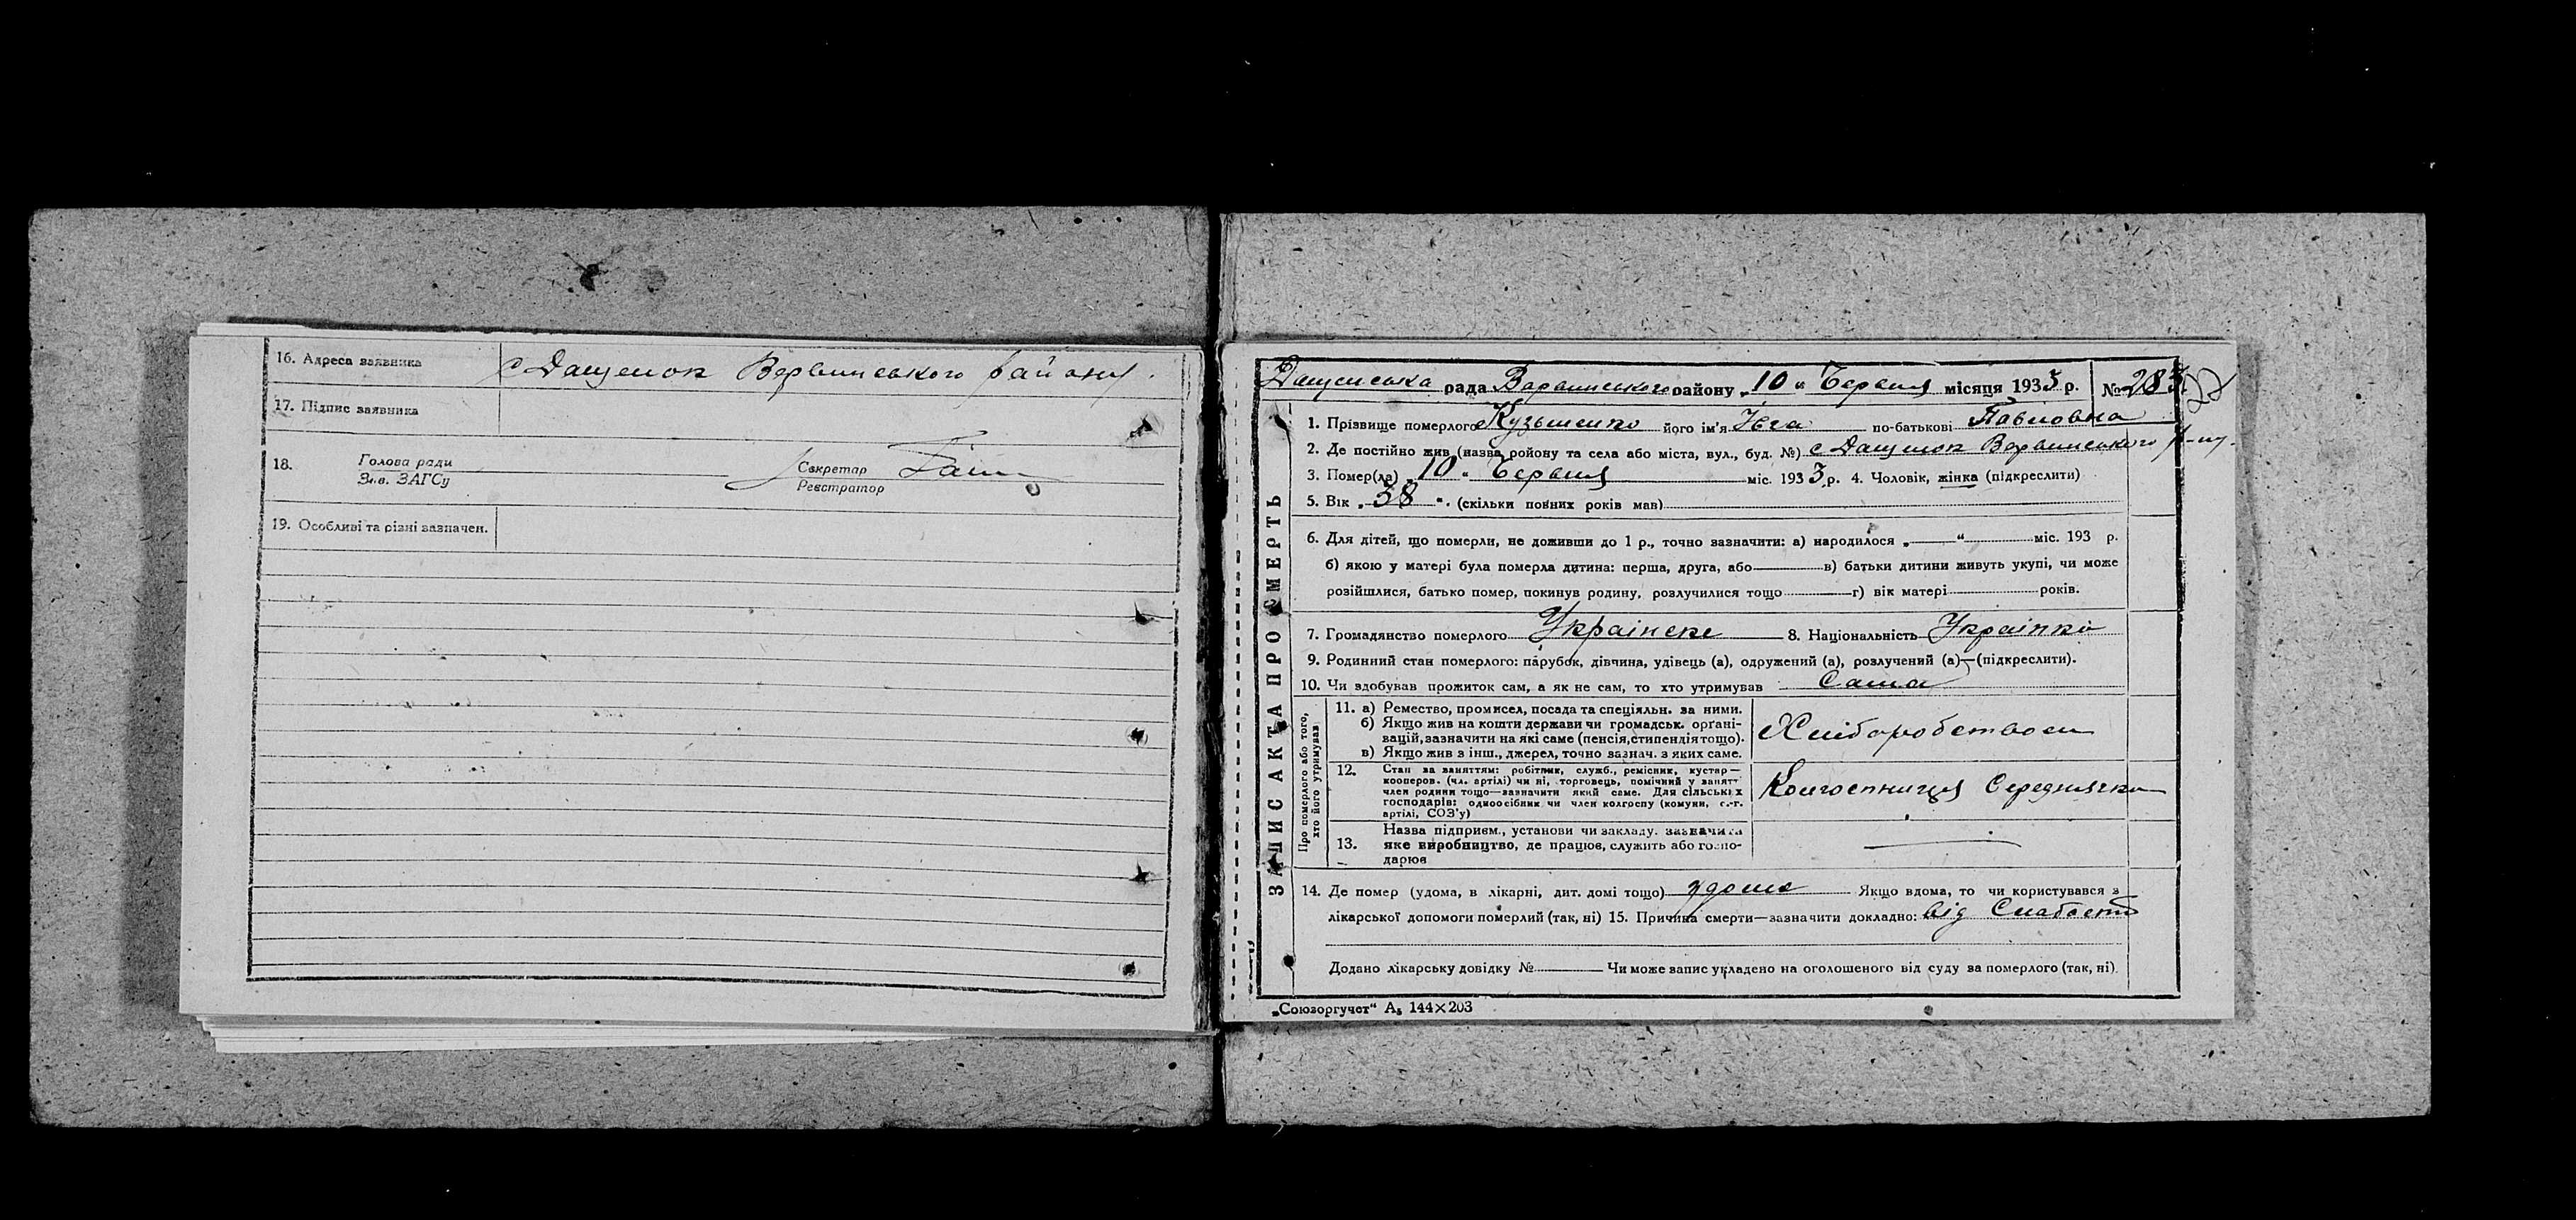 16. Адреса заявника с Дащенок Варвинського району.
17. Підпис заявника
18. Голова ради
Зав. ЗАГСу
Секретар
Реєстратор
19. Особливі та різні зазначен.
Дащенська рада Варвинського району „10“ Червня місяця 1933 р. № 283
ЗАПИС АКТА ПРО СМЕРТЬ
1. Прізвище померлого Кузьменко його ім'я Ївга по-батькові Павловна
2. Де постійно жив (назва району та села або міста, вул., буд. №) с Дащенок Варвинського р-ну.
3. Помер(ла) „10“ Червня міс. 1933 р. 4. Чоловік, жінка (підкреслити)
5. Вік „38“. (скільки повних років мав)
6. Для дітей, що померли, не доживши до 1 р., точно зазначити: а) народилося „ “ міс. 193 р.
б) якою у матері була померла дитина: перша, друга, або в) батьки дитини живуть укупі, чи може
розійшлися, батько помер, покинув родину, розлучилися тощо г) вік матері років.
7. Громадянство померлого Українске 8. Національність Українка
9. Родинний стан померлого: парубок, дівчина, удівець (а), одружений (а), розлучений (а)—(підкреслити).
10. Чи здобував прожиток сам, а як не сам, то хто утримував Сама
Про померлого або того,
хто його утримував
11. а) Ремество, промисел, посада та спеціяльн. за ними.
б) Якщо жив на кошти держави чи громадськ. орґані-
зацій, зазначити на які саме (пенсія, стипендія тощо).
в) Якщо жив з інш., джерел, точно зазнач. з яких саме.
Хліборобством
12. Стан за заняттям: робітник, служб., ремісник, кустар—
кооперов. (чл. артілі) чи ні, торговець, помічний у занятт
член родини тощо—зазначити який саме. Для сільських
господарів: одноосібник чи член колгоспу (комуни, с.-г.
артілі, СОЗ'у)
Колгоспниця Середнячка
13. Назва підприєм., установи чи закладу. зазначити
яке виробництво, де працює, служить або госпо-
дарює
14. Де помер (удома, в лікарні, дит. домі тощо) удома Якщо вдома, то чи користувався з
лікарської допомоги померлий (так, ні) 15. Причина смерти—зазначити докладно: від Слабости
Додано лікарську довідку № Чи може запис укладено на оголошеного від суду за померлого (так, ні).
„Союзоргучет“ А₅ 144×203